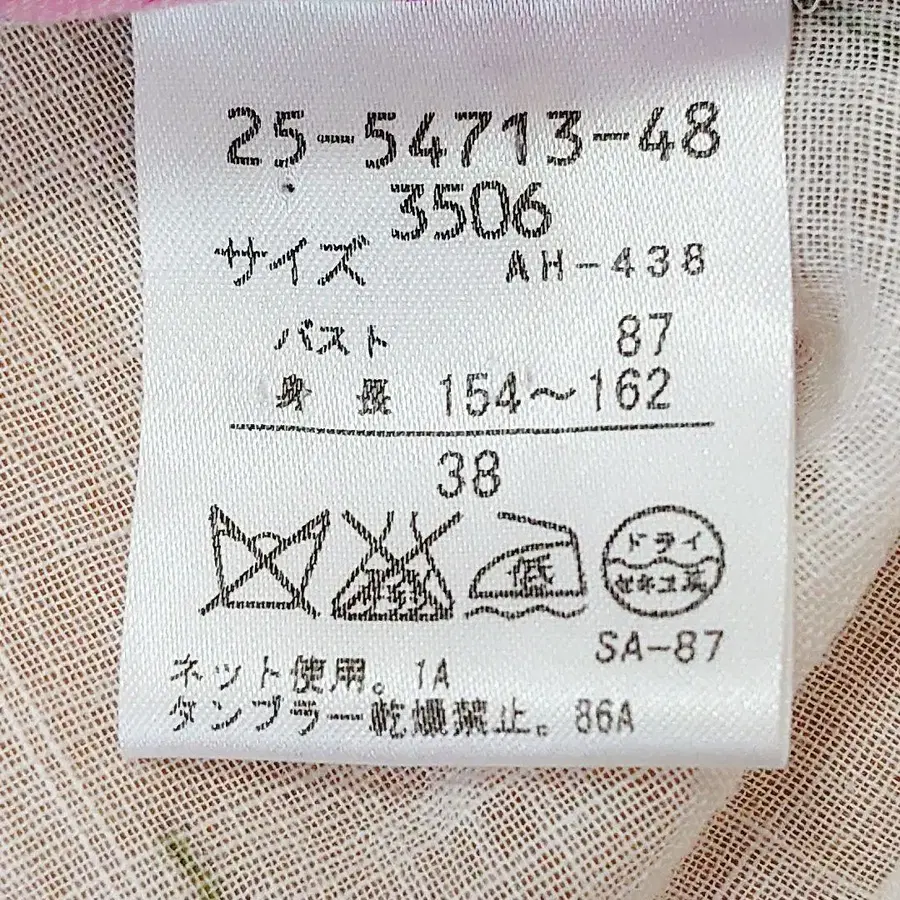 25-54713-48
3506
サイズ AH-438
バスト 87
身 長 154～162
38
低 ドライ
セキユ系
SA-87
ネット使用。1A
タンブラー乾燥禁止。86A